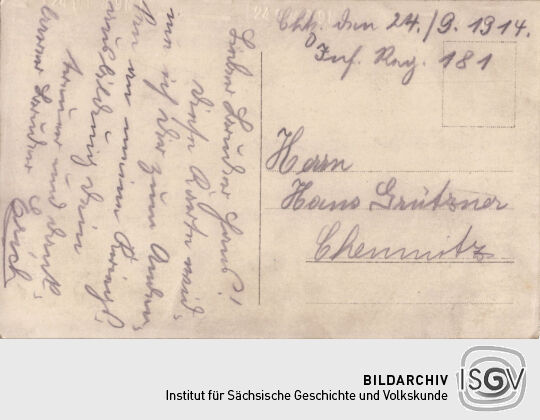 Chtz. den 24./9. 1914.
Inf. Reg. 181
Herrn
Hans Grützner
Chemnitz
Lieber Bruder Hans!
Diese Karte
ich Dir zum Anden-
ken an meine
ausbildung Dein
treuer und
Bruder
Erich
BILDARCHIV
ISGV
Institut für Sächsische Geschichte und Volkskunde